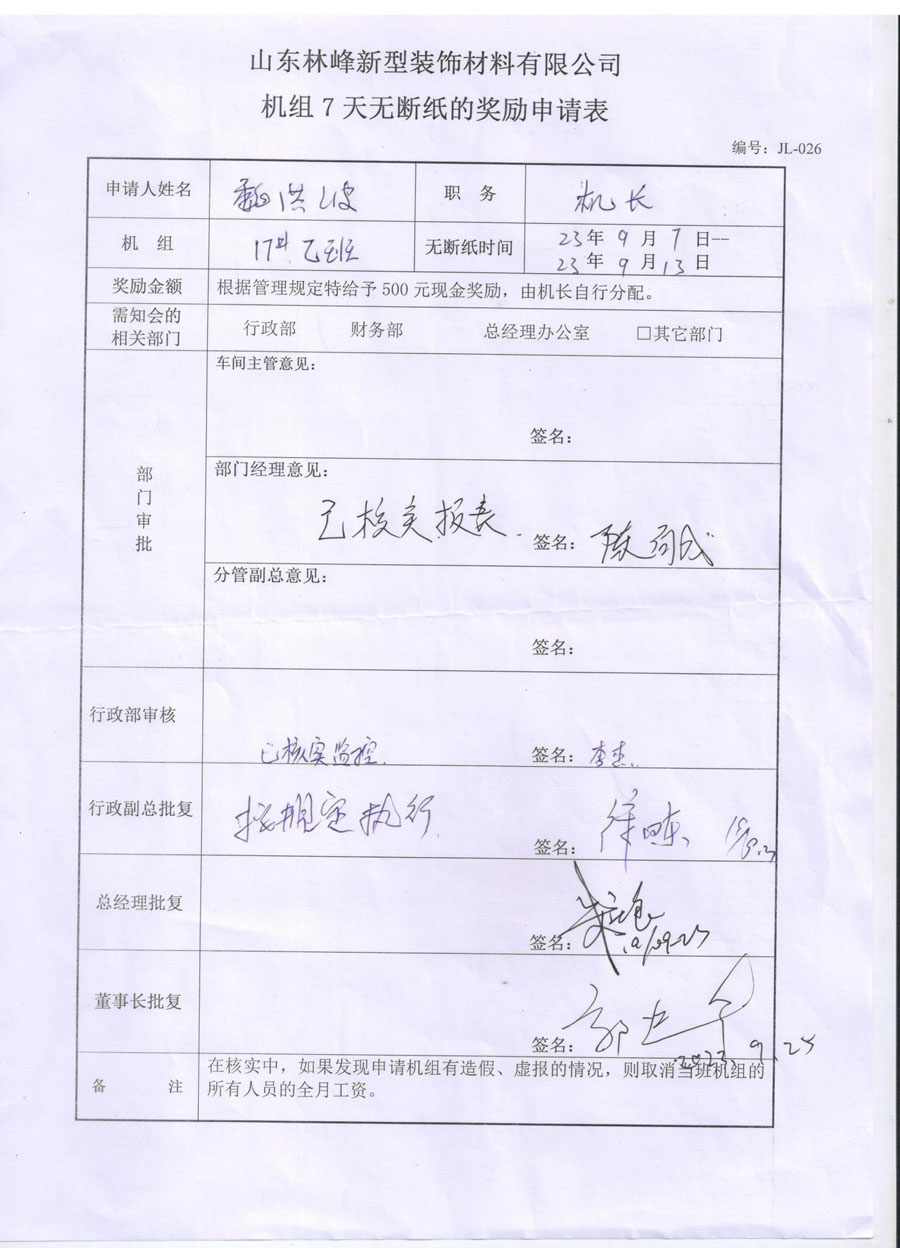 山东林峰新型装饰材料有限公司
机组 7 天无断纸的奖励申请表
编号：JL-026
申请人姓名 魏洪波 职 务 机长
机 组 17# 乙班 无断纸时间 23年 9 月 7 日--
23年 9 月 13 日
奖励金额 根据管理规定特给予 500 元现金奖励，由机长自行分配。
需知会的
相关部门 行政部 财务部 总经理办公室 □其它部门
部
门
审
批
车间主管意见：
签名：
部门经理意见：
已核实报表.
签名：
分管副总意见：
签名：
行政部审核 已核实监控. 签名：李杰.
行政副总批复 按规定执行 签名：
总经理批复
签名：
董事长批复
签名：
2023. 9. 25
备 注 在核实中，如果发现申请机组有造假、虚报的情况，则取消当班机组的
所有人员的全月工资。